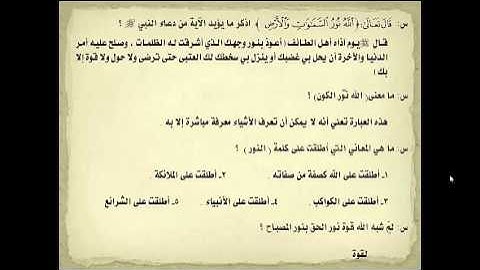 س: قال تعالى: ﴿ ٱللَّهُ نُورُ ٱلسَّمَٰوَٰتِ وَٱلْأَرْضِ ﴾ اذكر ما يؤيد الآية من دعاء النبي ﷺ ؟
قال ﷺ يوم أذاه أهل الطائف: ( أعوذ بنور وجهك الذي أشرقت له الظلمات ، وصلح عليه أمر
الدنيا والآخرة أن يحل بي غضبك أو ينزل بي سخطك لك العتبى حتى ترضى ولا حول ولا قوة إلا
بك )
س: ما معنى( الله نور الكون) ؟
هذه العبارة تعني أنه لا يمكن أن تعرف الأشياء معرفة مباشرة إلا به .
س: ما هي المعاني التي أطلقت على كلمة ( النور) ؟
١ـ أطلقت على الله كصفة من صفاته . ٢ـ أطلقت على الملائكة .
٣ـ أطلقت على الكواكب . ٤ـ أطلقت على الأنبياء . ٥ـ أطلقت على الشرائع
س: لم شبه الله قوة نور الحق بنور المصباح ؟
لقوة